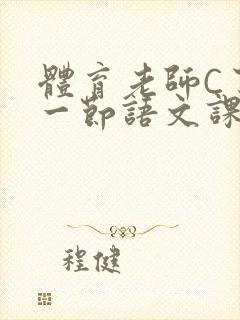 體育老師C
一節語文課
程健